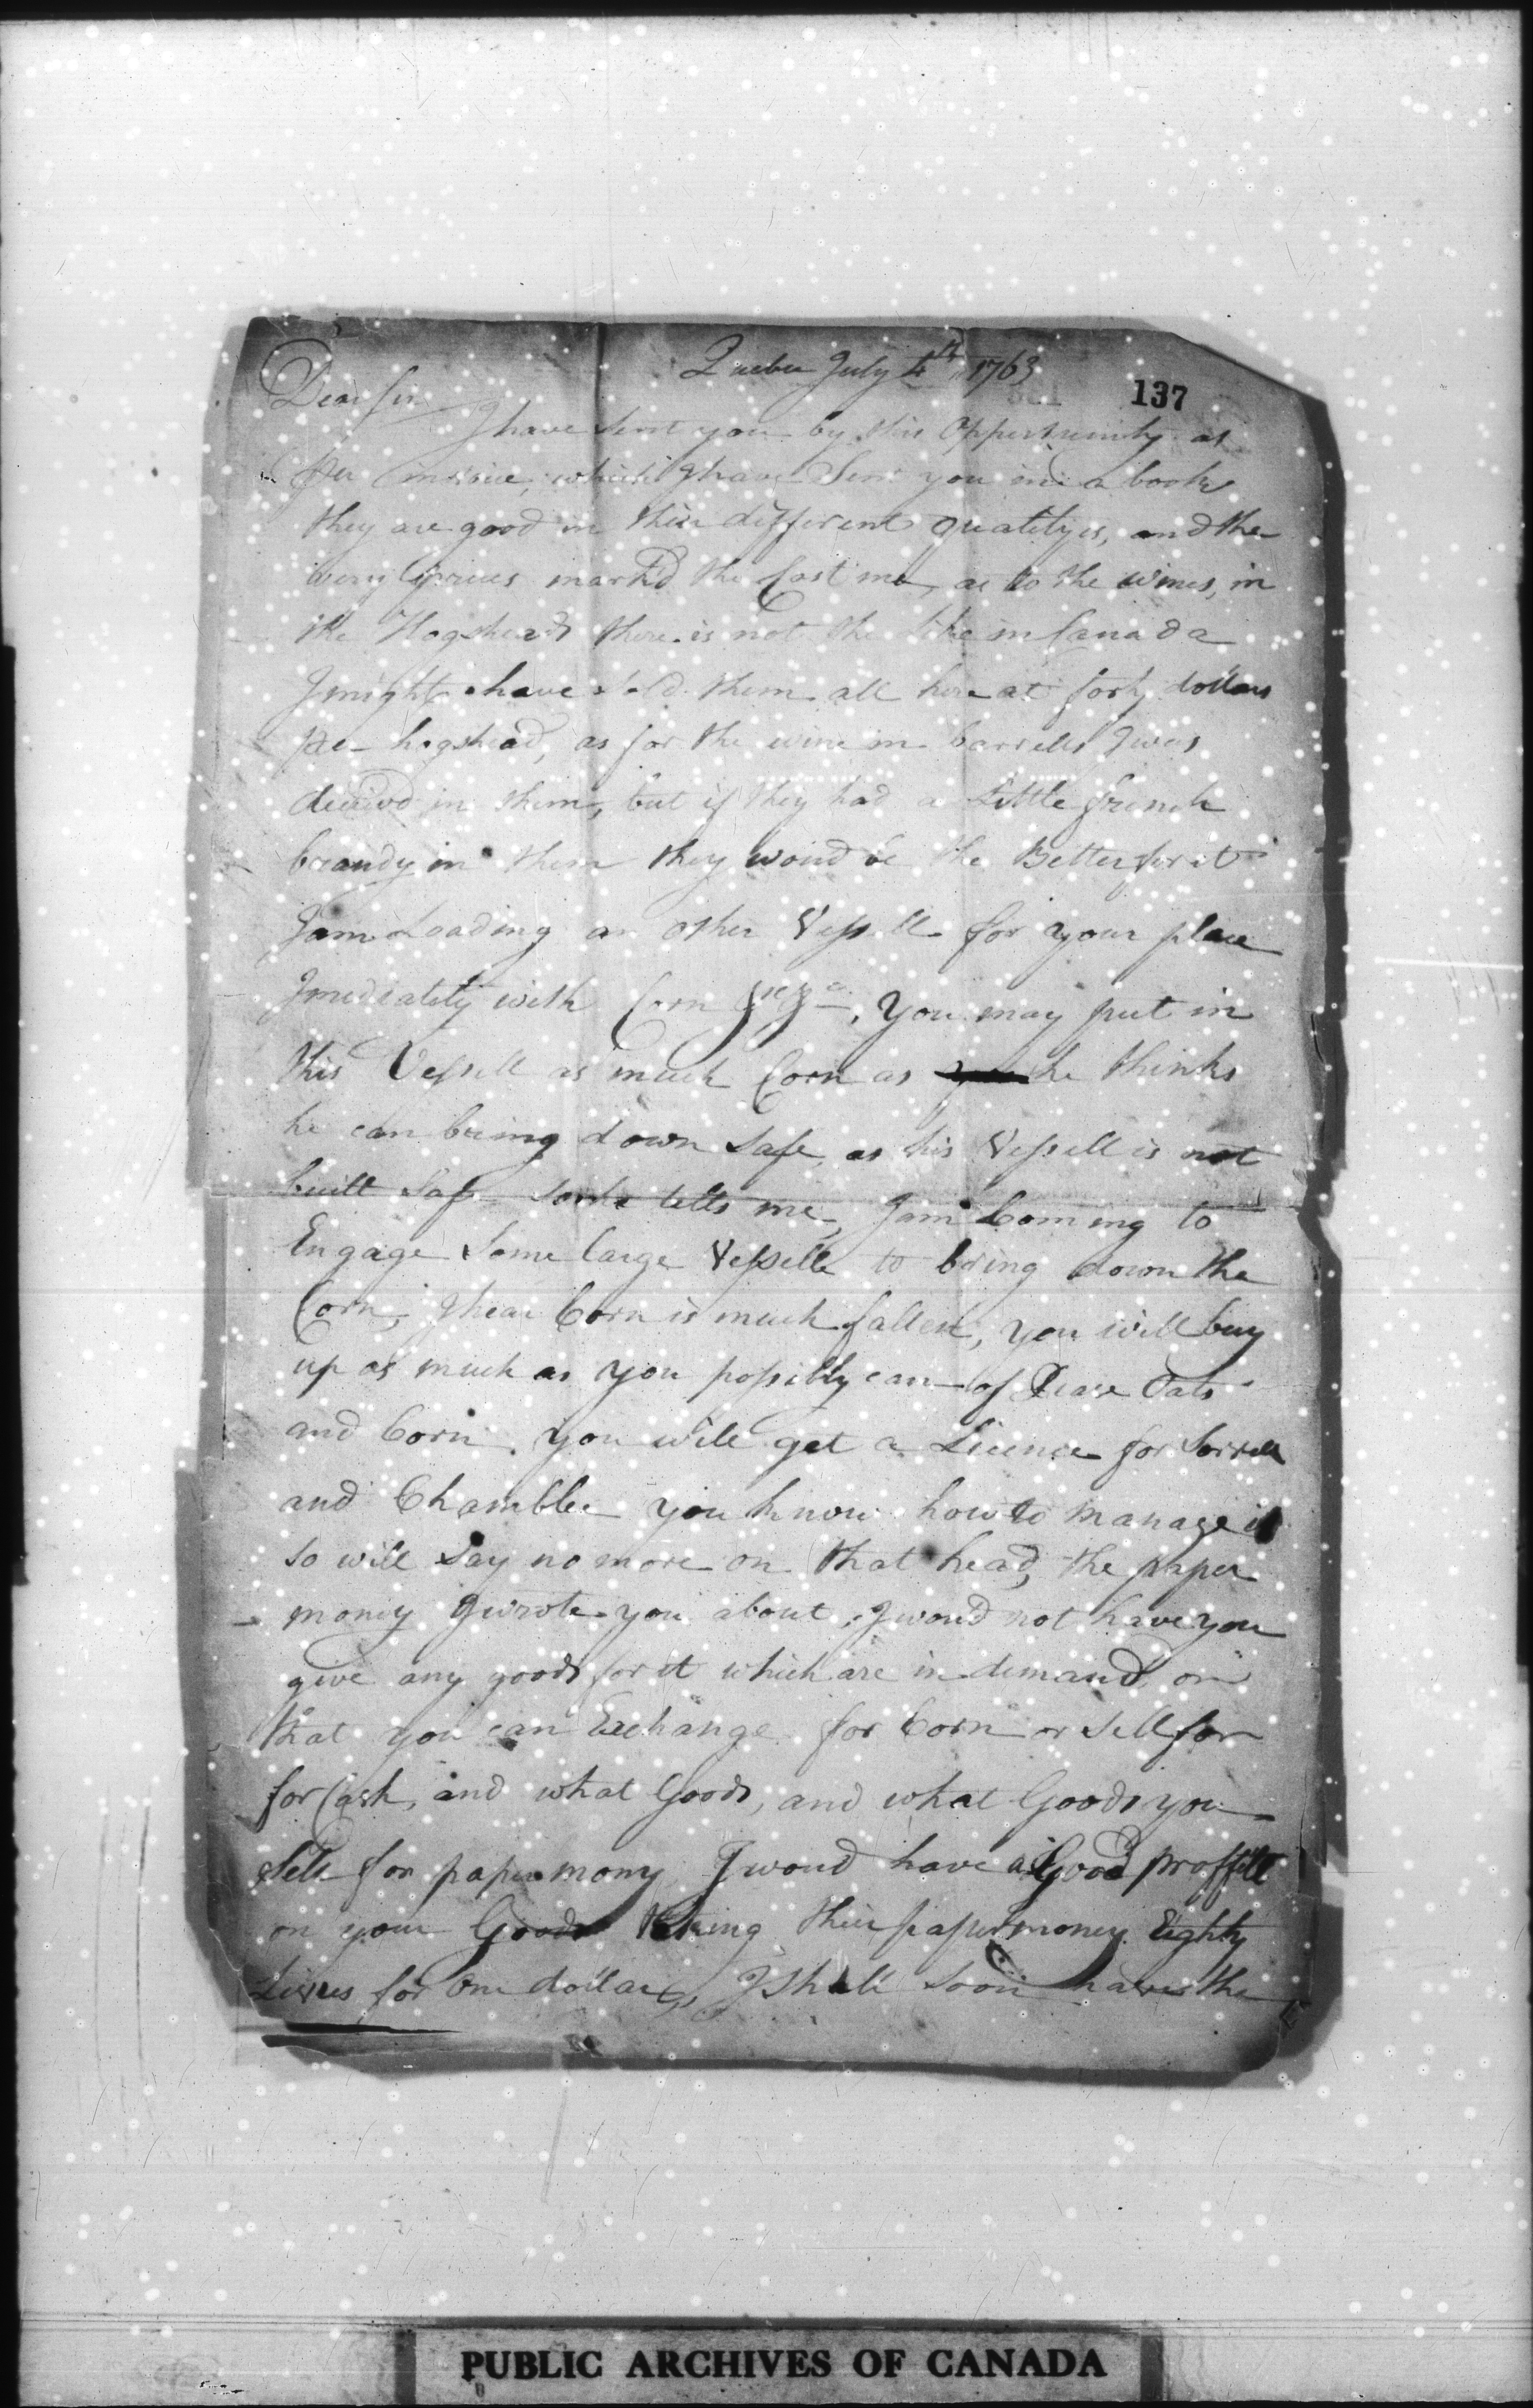 Quebec July 4th 1763
137
Dear Sir
I have sent you by this Oppertunity as
per invoice, which I have Sent you in a book
they are good in their different qualityes, and the
very prices mark'd the Cost me, as to the wines, in
the Hogsheads there is not the like in Canada
I might have sold them all here at forty dollars
per hogshead, as for the wine in barrells I was
deceivd in them, but if they had a Little french
brandy in them they woud be the Better for it
I am Loading an other Vessell for your place
Imediately with Corn &c &c, you may put in
this Vessell as much Corn as he thinks
he can bring down Safe, as his Vessell is not
built Safe so he tells me, I am Coming to
Engage Some large Vessells to bring down the
Corn, I hear Corn is much fallen, you will buy
up as much as you possibly can of Pease Oats
and Corn. you will get a Licence for Sorrell
and Chamblee you know how to manage it
so will say no more on that head, the paper
money I wrote you about, I woud not have you
give any goods for it which are in demand, or
that you can Exchange for Corn or sell for
for Cash, and what Goods, and what Goods you
Sell for paper mony I woud have a Good proffitt
on your Goods taking their paper money Eighty
Livres for one dollar, I shall soon have the
PUBLIC ARCHIVES OF CANADA